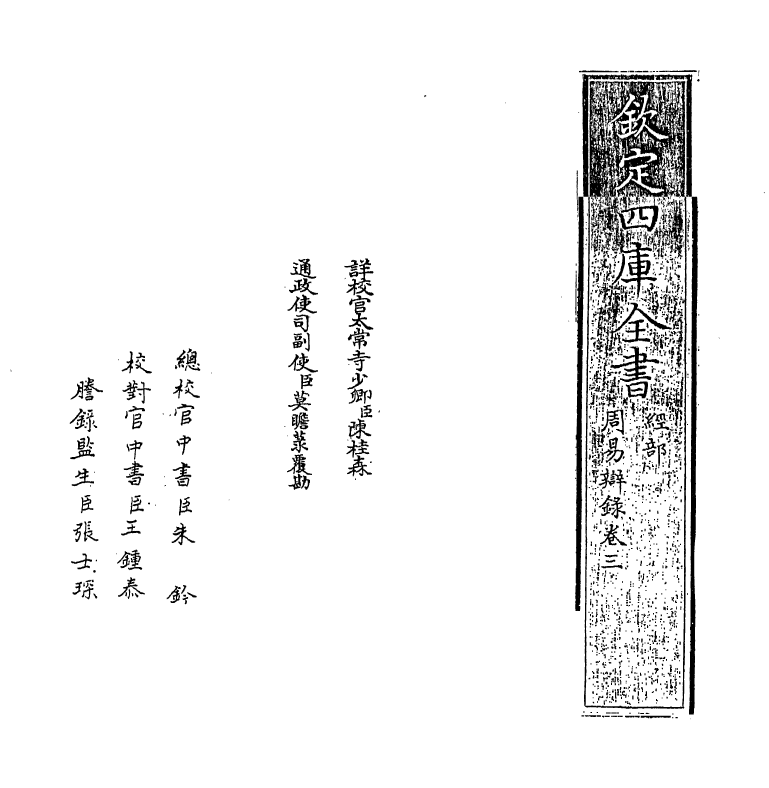 欽定四庫全書
經部
周易辯錄卷三
詳校官太常寺少卿臣陳桂森
通政使司副使臣莫瞻菉覆勘
總校官中書臣朱鈐
校對官中書臣王鍾泰
謄錄監生臣張士琛